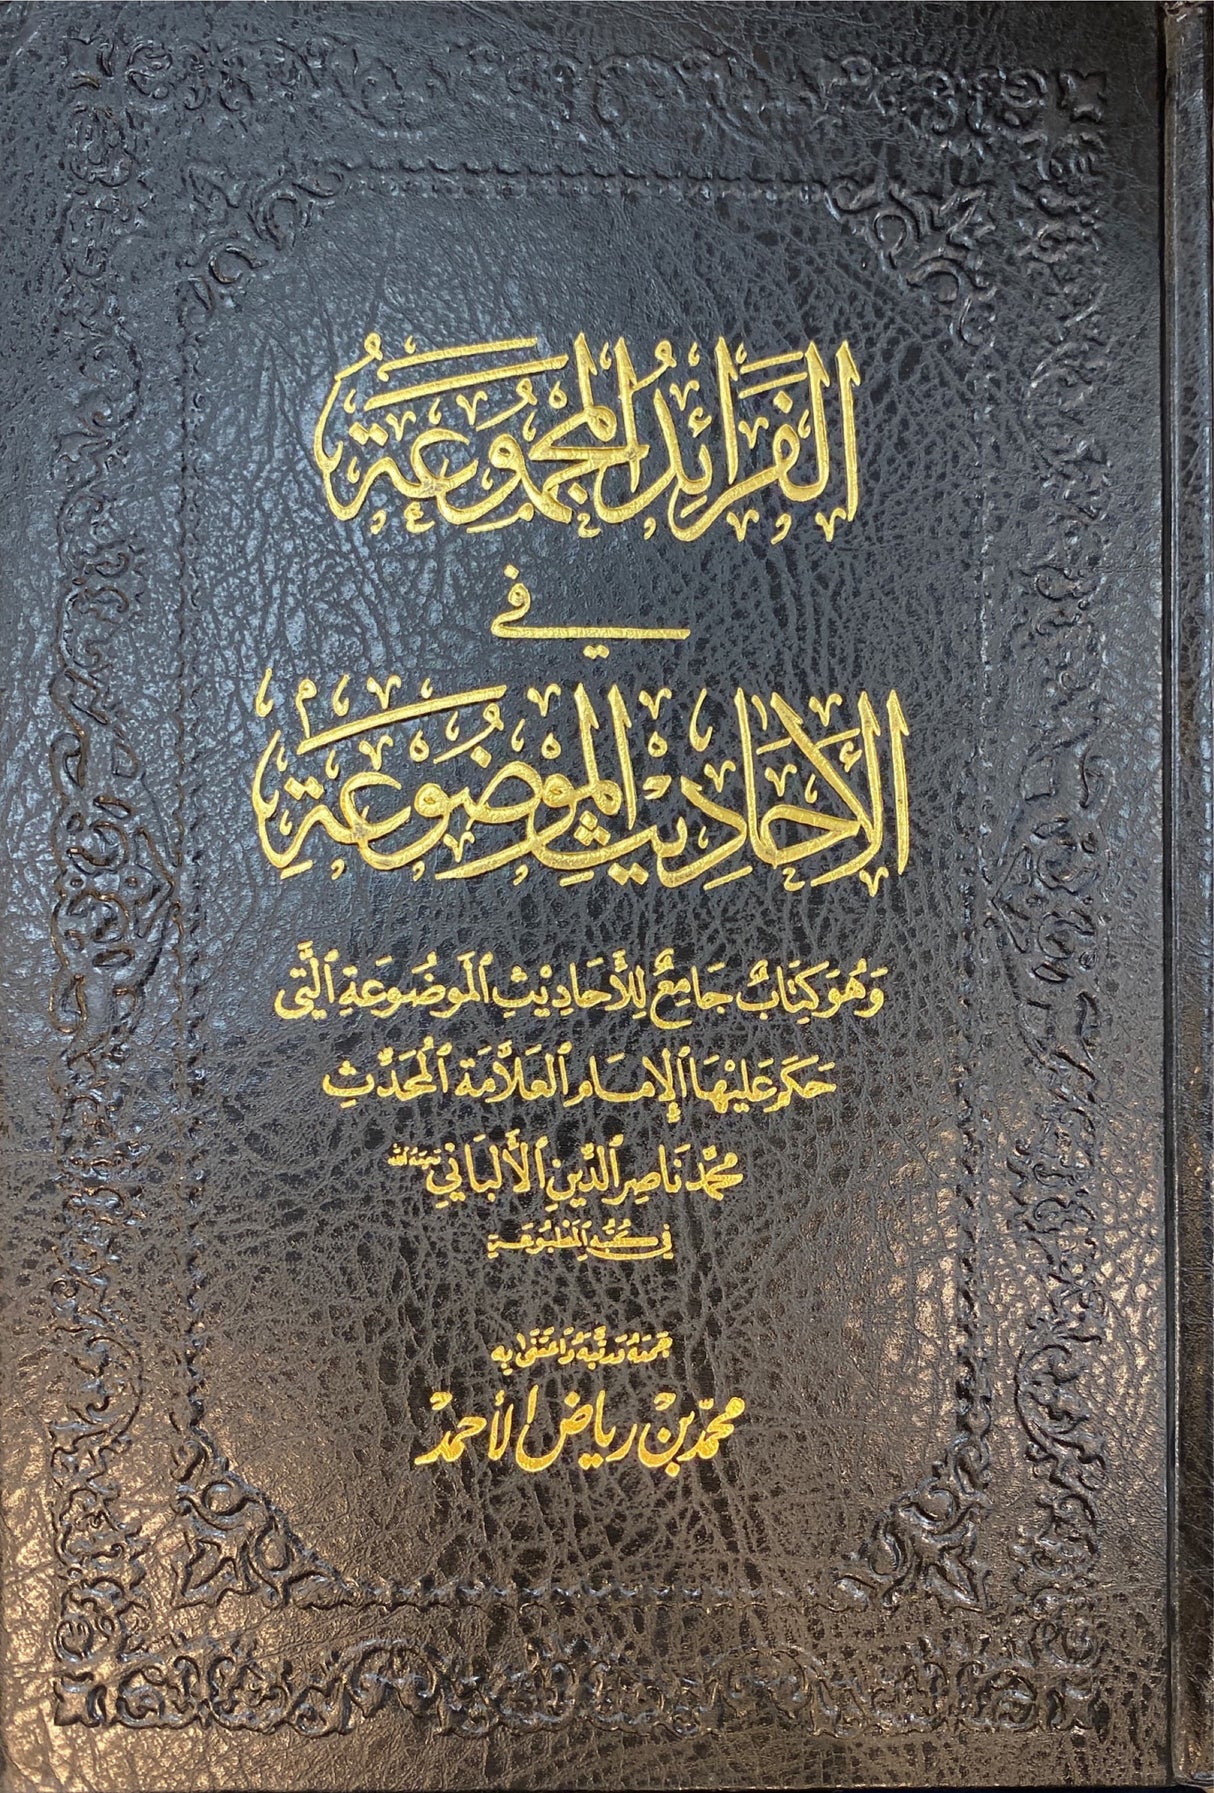 الفَرَائِدُ المَجْمُوعَةُ
في
الأَحَادِيثِ المَوْضُوعَةِ
وَهُوَ كِتَابٌ جَامِعٌ لِلأَحَادِيْثِ المَوضُوعَةِ الَّتِي
حَكَمَ عَلَيْهَا الإِمَامُ العَلَّامَةُ المُحَدِّثِ
مُحَمَّد نَاصِر الدِّينِ الأَلبَانِيّ رَحِمَهُ اللهُ
فِي كُتُبِهِ المَطْبُوعَةِ
جَمَعَهُ وَرَتَّبَهُ وَاعْتَنَى بِهِ
محمّد بْن رياض الأحمدْ